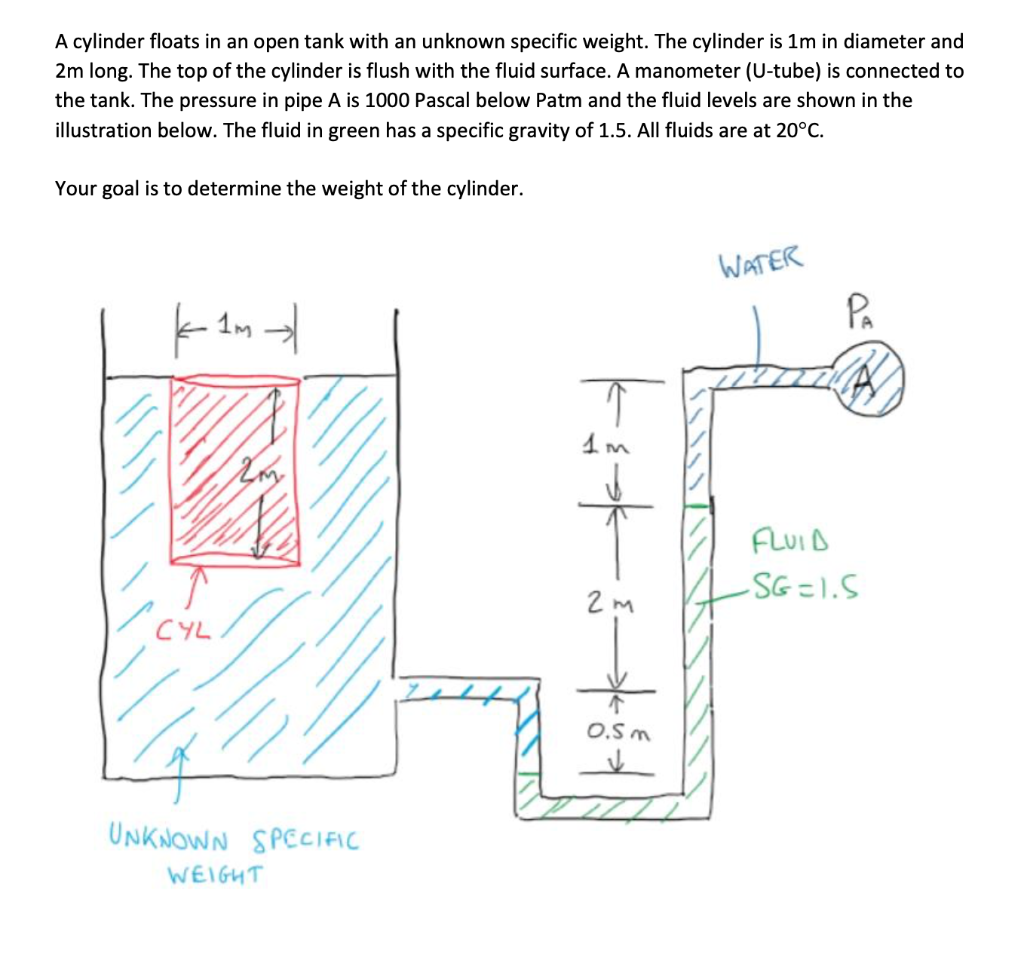 A cylinder floats in an open tank with an unknown specific weight. The cylinder is 1m in diameter and
2m long. The top of the cylinder is flush with the fluid surface. A manometer (U-tube) is connected to
the tank. The pressure in pipe A is 1000 Pascal below Patm and the fluid levels are shown in the
illustration below. The fluid in green has a specific gravity of 1.5. All fluids are at 20°C.
Your goal is to determine the weight of the cylinder.
WATER
1m
PA
A
1m
2m
FLUID
SG=1.5
2m
CYL
0.5m
UNKNOWN SPECIFIC
WEIGHT